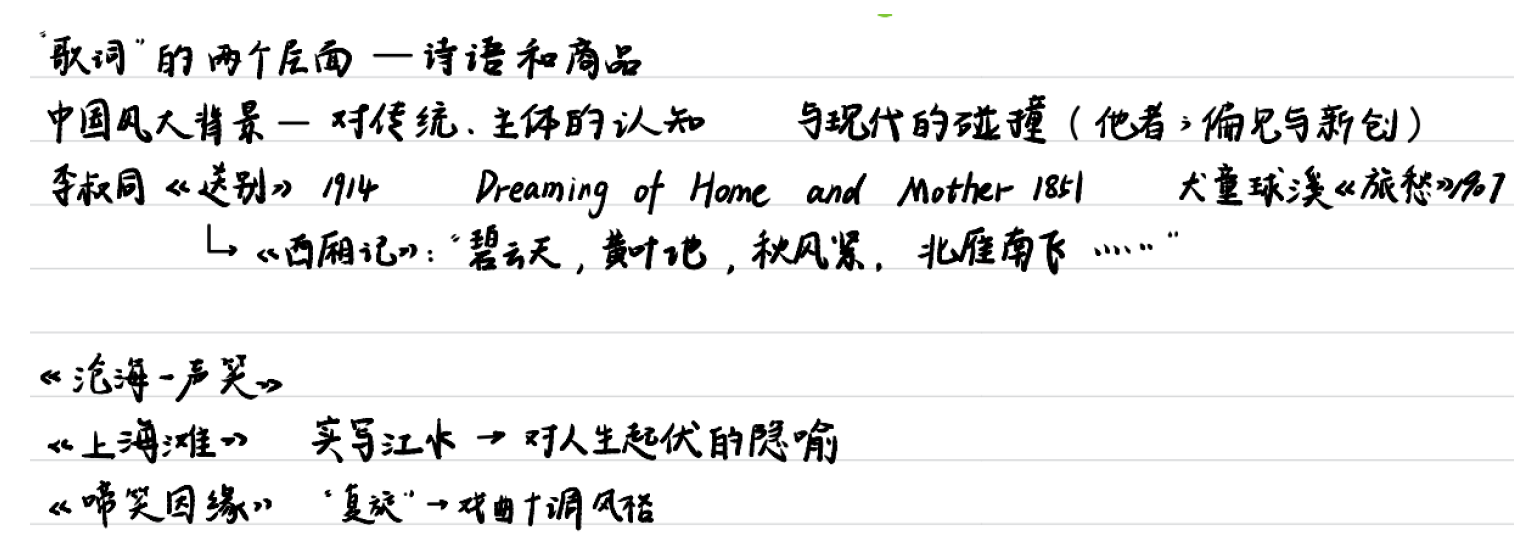 “歌词”的两个层面 — 诗语和商品
中国风大背景 — 对传统、主体的认知 与现代的碰撞（他者；偏见与新创）
李叔同《送别》1914 Dreaming of Home and Mother 1851 犬童球溪《旅愁》1907
↳《西厢记》：“碧云天，黄叶地，秋风紧，北雁南飞……”
《沧海一声笑》
《上海滩》 实写江水 → 对人生起伏的隐喻
《啼笑因缘》 → 戏曲小调风格